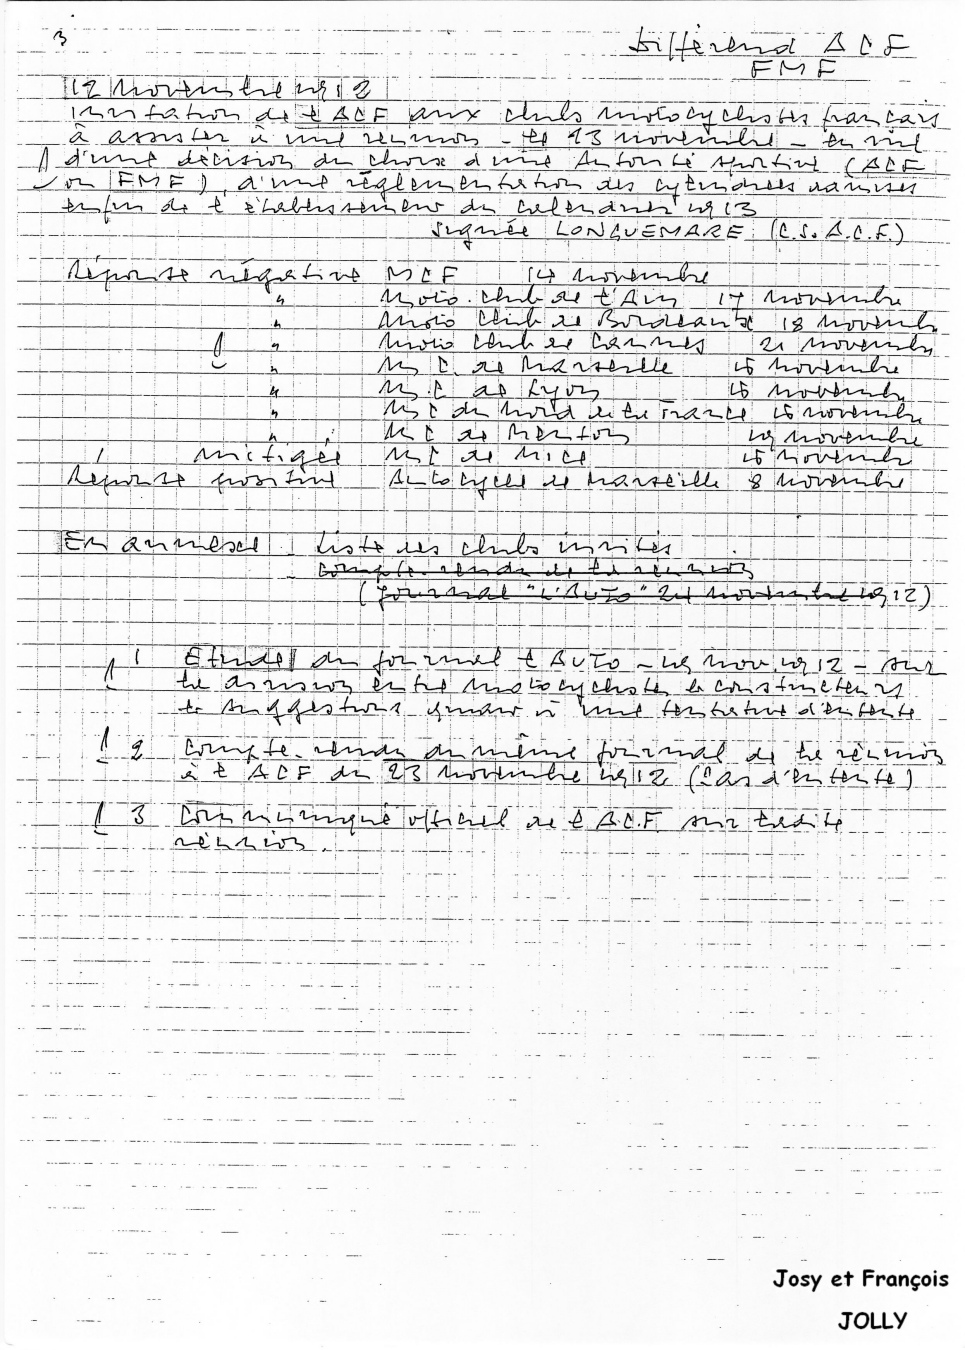 3
Différend ACF
FMF
12 Novembre 1912
Invitation de l'ACF aux clubs motocyclistes français
à assister à une réunion - le 23 novembre - en vue
d'une décision du choix d'une Autorité sportive (ACF
ou FMF), d'une réglementation des cylindrées admises
enfin de l'établissement du calendrier 1913
Signée LONGUEMARE (C.S.A.C.F.)
Réponse négative MCF 14 novembre
" Moto-club de l'Ain 17 novembre
" Moto Club de Bordeaux 18 novemb
" Moto Club de Cannes 21 novemb
" M.C. de Marseille 15 novembre
" M.C de Lyon 15 novemb
" M C du Nord de la France 15 novembre
" M C de Menton 19 novembre
" mitigée M C de Nice 15 novemb
Réponse positive Autocycle de Marseille 8 novembre
En annexe - Liste des clubs invités
- Compte-rendu de la réunion
(Journal "L'Auto" 24 novembre 1912)
1 Etude du journal l'AUTO - 19 nov. 1912 - sur
la division entre motocyclistes & constructeurs
& suggestions quant à une tentative d'entente
2 Compte-rendu du même journal de la réunion
à l'ACF du 23 novembre 1912 (Pas d'entente)
3 Communiqué officiel de l'A.C.F. sur ladite
réunion.
Josy et François
JOLLY